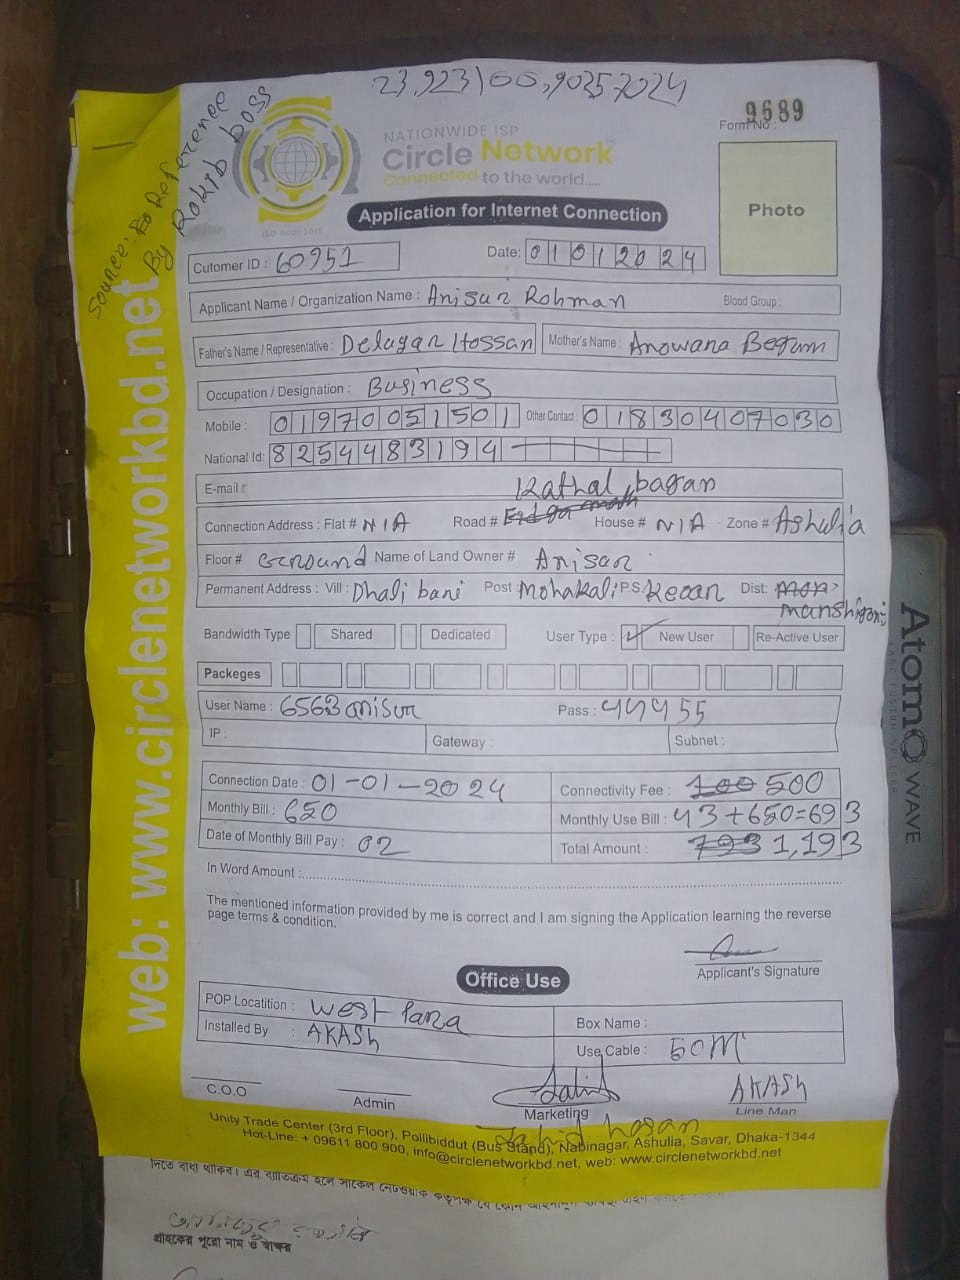 23.923100,90.357024
Source: Reference
By Rokib boss
9689
Form No :
NATIONWIDE ISP
Circle Network
Connected to the world.....
ISO 9001:2015
Photo
Application for Internet Connection
Cutomer ID : 60951 Date: 01012024
Applicant Name / Organization Name : Anisur Rohman Blood Group :
Father's Name / Representative : Delayar Hossan Mother's Name : Anowara Begum
Occupation / Designation : Business
Mobile : 01970051501 Other Contact : 01830407030
National Id: 8254483194
E-mail :
Kathal bagan
Connection Address : Flat # N/A Road # House # N/A Zone # Ashulia
Floor # Ground Name of Land Owner # Anisur
Permanent Address : Vill : Dhali bari Post Mohakali P.S. Dist:
Bandwidth Type Shared Dedicated User Type : New User Re-Active User
Packeges
User Name : 6563anisur Pass :
IP : Gateway : Subnet :
Connection Date : 01-01-2024 Connectivity Fee : 100 500
Monthly Bill : 650 Monthly Use Bill : 43+650=693
Date of Monthly Bill Pay : 02 Total Amount : 793 1,193
In Word Amount :
The mentioned information provided by me is correct and I am signing the Application learning the reverse
page terms & condition.
Applicant's Signature
Office Use
POP Locatition : West Para Box Name :
Installed By : AKASh Use Cable : 50M
AKASh
C.O.O Admin Marketing Line Man
Jahid hasan
Unity Trade Center (3rd Floor), Pollibiddut (Bus Stand), Nabinagar, Ashulia, Savar, Dhaka-1344
Hot-Line: + 09611 800 900, info@circlenetworkbd.net, web: www.circlenetworkbd.net
web: www.circlenetworkbd.net
Atomo WAVE
দিতে বাধ্য থাকিব। এর ব্যতিক্রম হলে সার্কেল নেটওয়ার্ক কতৃপক্ষ যে কোন
গ্রাহকের পুরো নাম ও স্বাক্ষর